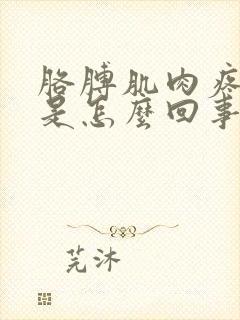 胳膊肌肉疼
是怎麼回事
芫沐